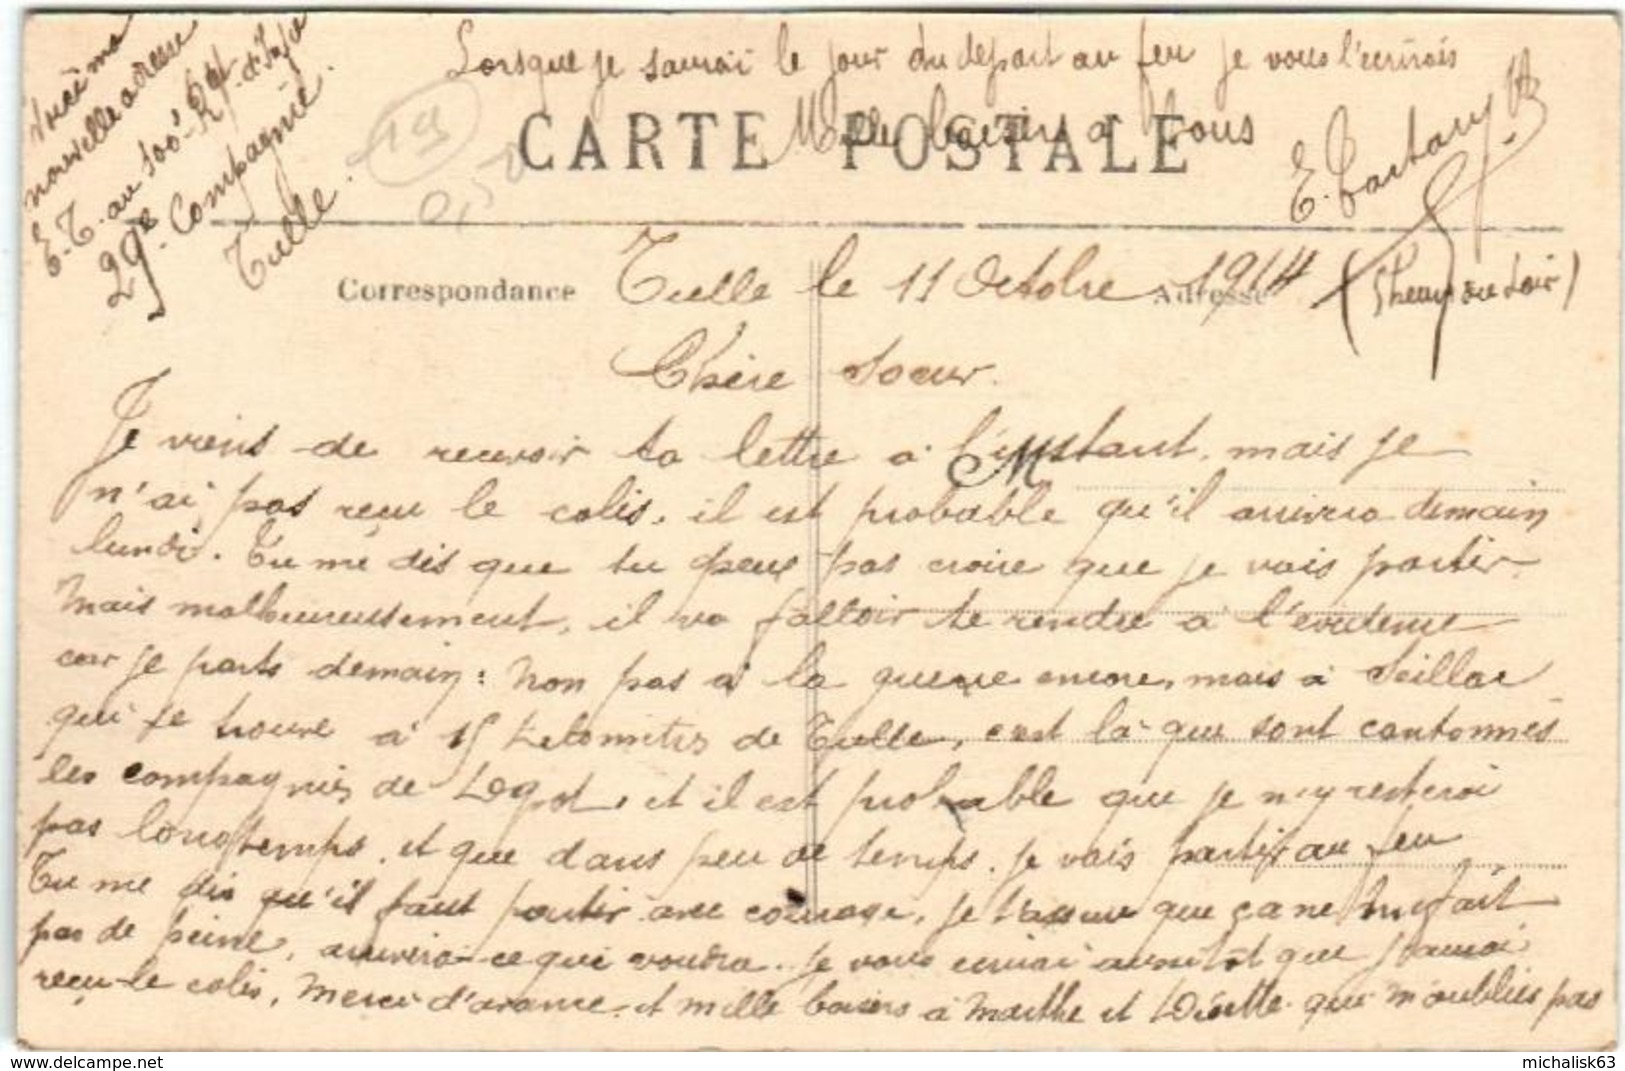 Lorsque je saurai le jour du depart au feu je vous l'ecrirais
Mille baisers à Vous
Voici ma
nouvelle adresse
E. T. au 100e Rgt d'Infie
29e Compagnie
Tulle.
19
0,50
CARTE POSTALE
E. Tartary
(Thenay Loir)
Correspondance
Adresse
Tulle le 11 Octobre 1914
Chère Soeur.
Je viens de recevoir ta lettre à l'instant, mais je
n'ai pas reçu le colis, il est probable qu'il arrivera demain
lundi. Tu me dis que tu peux pas croire que je vais partir
Mais malheureusement, il va falloir te rendre à l'evidence
car je parts demain: Non pas à la guerre encore, mais à Seillac
qui se trouve à 15 Kilomètres de Tulle, c'est là que sont cantonnés
les compagnies de Depot, et il est probable que je n'y resterai
pas longtemps, et que dans peu de temps. je vais partir au feu
Tu me dis qu'il faut partir avec courage, je t'assure que ça ne me fait
pas de peine, arrivera ce qui voudra. Je vous ecrirai aussitôt que j'aurai
reçu le colis, Merci d'avance, et mille baisers à Marthe et que m'oublies pas
M
michalisk63